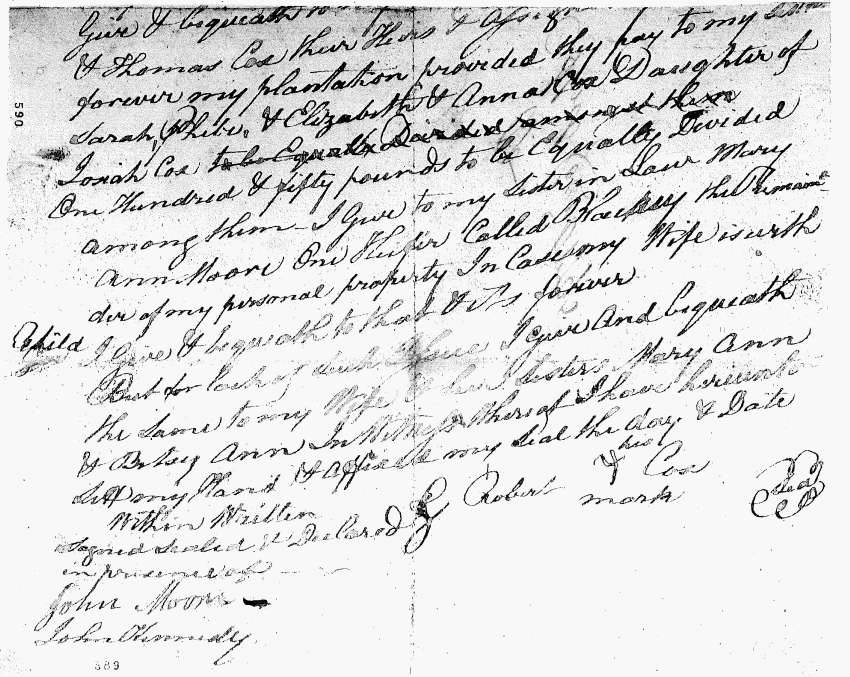 Give & bequeath to
& Thomas Cox their Heirs & Assigns
forever my plantation provided they pay to my
Sarah, Phebe, & Elizabeth & Anna Cox Daughter of
Josiah Cox to be Equally Divided amongst them
One Hundred & fifty pounds to be Equally Divided
among them - I Give to my Sister in Law Mary
Ann Moore One Heifer Called Blackey the Remain
der of my personal property In Case my Wife is with
Child I Give & bequeath to that & its forever
But for lack of such I give and bequeath
the same to my Wife & her Sisters Mary Ann
& Betsey Ann In Witness thereof I have hereunto
Sett my Hand & affixed my Seal the day & Date
Within Written
his
Robert Cox
mark
Seal
Signed Sealed & Declared
in presence of
John Moore
John Kennedy
590
589